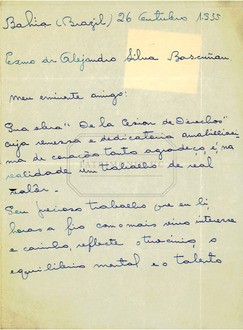 Bahia (Brazil) 26 Outubro 1935
Exmo dr Alejandro Silva Bascuñan
meu eminente amigo:
Sua obra "De la Cesion de Derechos"
cuja remessa e dedicatoria amabilissi-
ma de coração tanto agradeço, é, na
realidade um trabalho de real
valôr.
Seu precioso trabalho que eu li
horas a fio com o mais vivo interesse
e carinho, reflecte o tirocinio, o
equilibrio mental e o talento